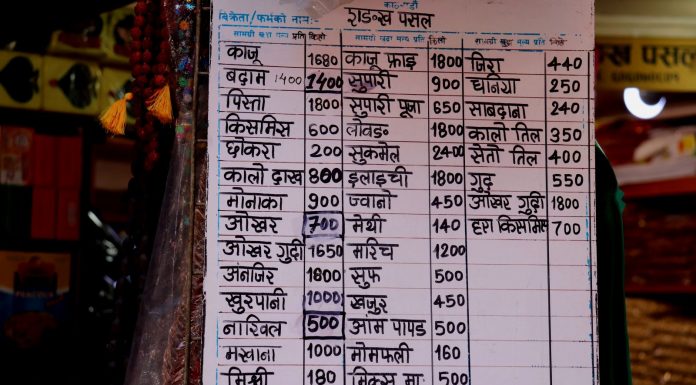 विक्रेता/फर्मको नामः- शङख पसल
सामग्री खुद्रा मूल्य प्रति किलो सामग्री खुद्रा मूल्य प्रति किलो सामग्री खुद्रा मूल्य प्रति किलो
काजू 1680 काजू फ्राइ 1800 जिरा 440
बदाम 1400 1400 सुपारी 900 धनिया 250
पिस्ता 1800 सुपारी पूजा 650 साबदाना 240
किसमिस 600 ल्वाङ 1800 कालो तिल 350
छोकरा 200 सुकमेल 2400 सेतो तिल 400
कालो दाख 800 इलाइची 1800 गुद 550
मोनाका 900 ज्वानो 450 ओखर गुदी 1800
ओखर 700 मेथी 140 हरा किसमिस 700
ओखर गुदी 1650 मरिच 1200
अंनजिर 1800 सुफ 500
खुरपानी 1000 खजुर 450
नारिवल 500 आम पापड 500
मखाना 1000 मोमफली 160
मिश्री 180 मिक्स माः 500
ख पसल